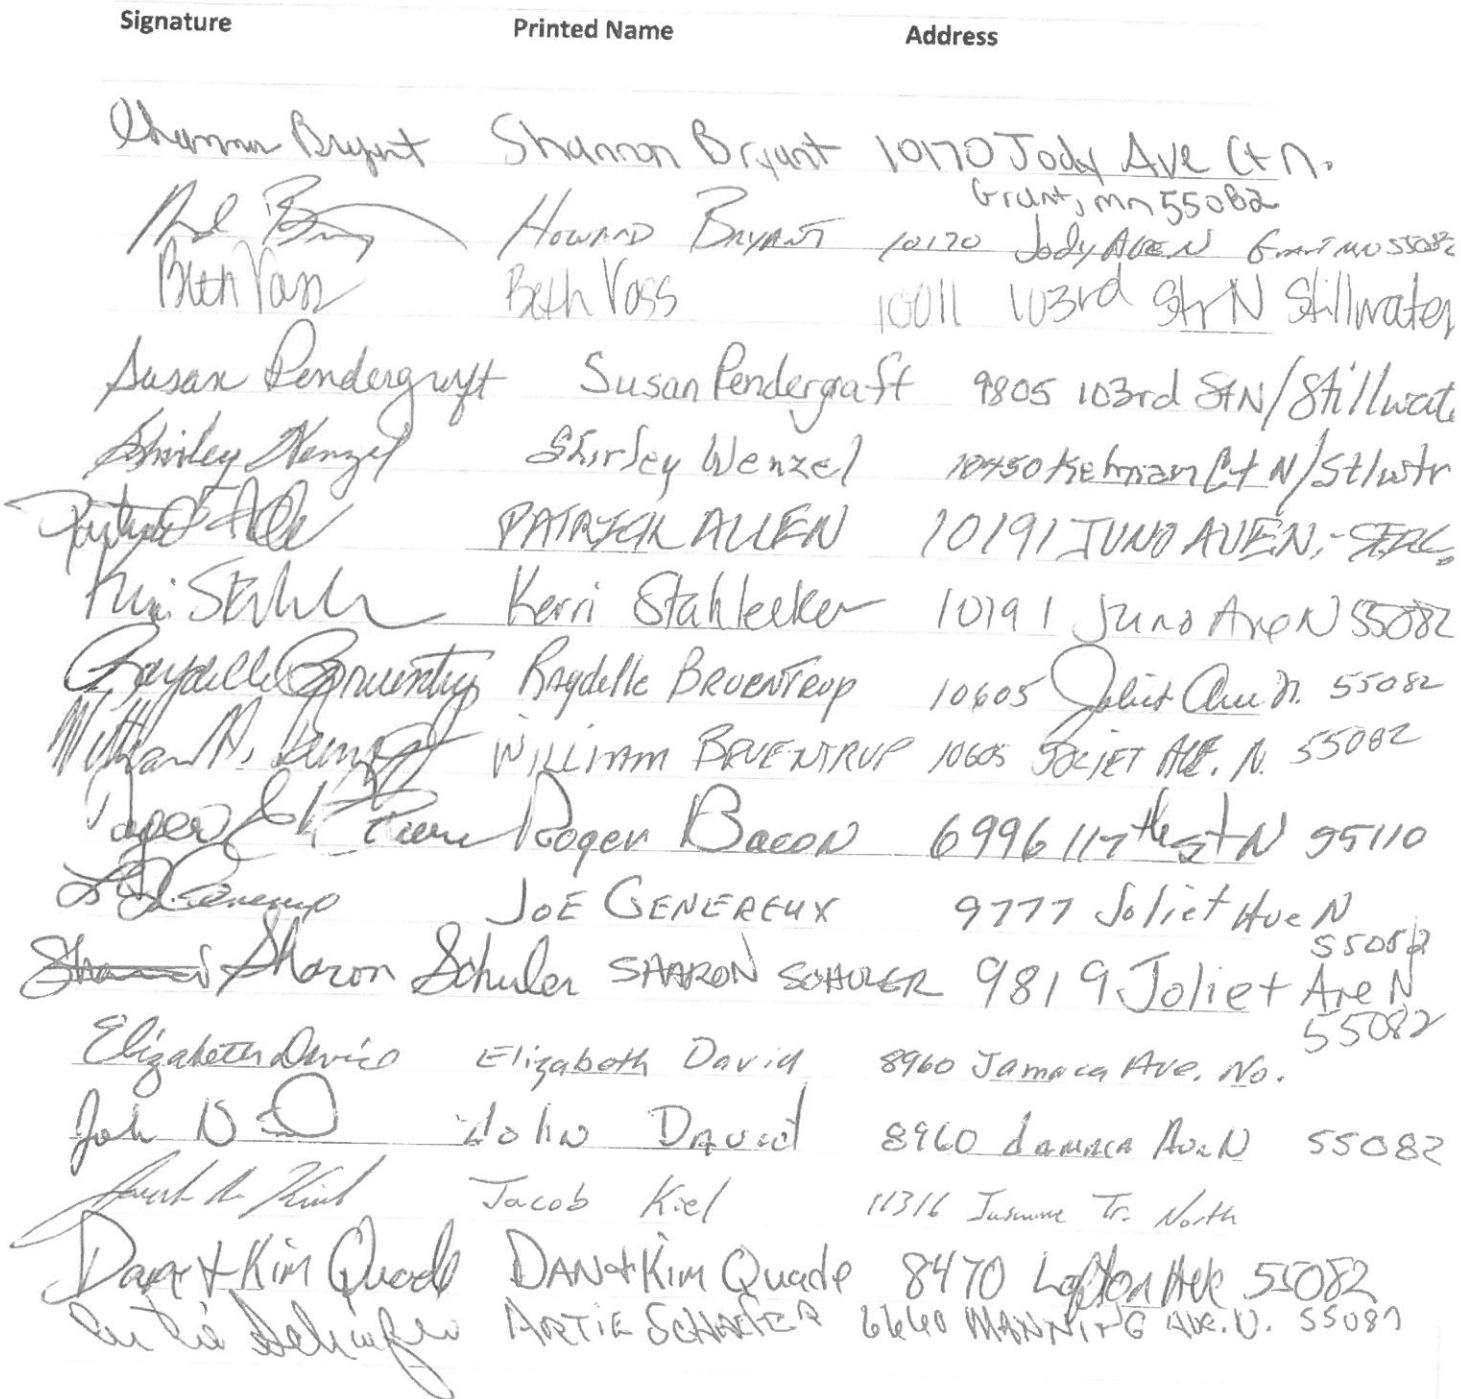 Signature Printed Name Address
Shannon Bryant Shannon Bryant 10170 Jody Ave Ct N.
Grant, mn 55082
Howard Bryant 10170 Jody Ave N Grant MN 55082
Beth Voss Beth Voss 10011 103rd Str N Stillwater,
Susan Pendergraft Susan Pendergraft 9805 103rd St N/Stillwat
Shirley Wenzel Shirley Wenzel 10450 Kelman Ct N/Stlwtr
PATRICK ALLEN 10191 JUNO AVE N,
Kerri Stahlecker 10191 Juno Ave N 55082
Raydelle Bruentrup Raydelle BRUENTRUP 10605 Joliet Ave N. 55082
WILLIAM BRUENTRUP 10605 JOLIET AVE. N. 55082
Roger Bacon 6996 117th St N 55110
JOE GENEREUX 9777 Joliet Ave N
55082
Sharon Schuler SHARON SCHULER 9819 Joliet Ave N
55082
Elizabeth David Elizabeth David 8960 Jamaca Ave. No.
John David 8960 Jamaca Ave N 55082
Jacob Kiel 11316 Jasmine Tr. North
Dan + Kim Quade DAN + Kim Quade 8470 Lofton Ave 55082
Artie Schaefer ARTIE SCHAEFER 6640 MANNING AVE. N.